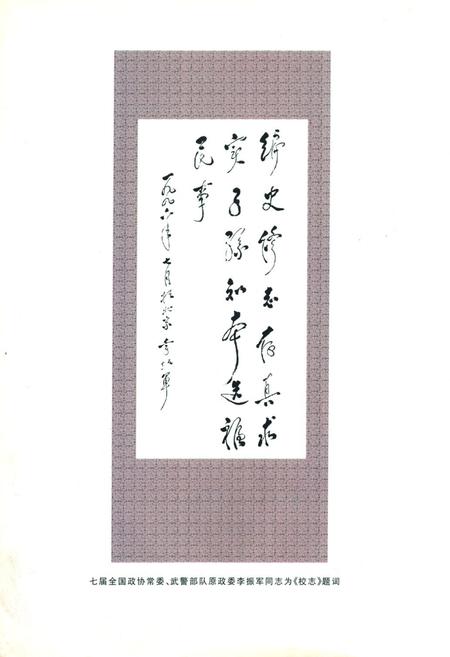 编史修志存真求
实子孙知本造福
民事
一九九六年七月于北京 李振军
七届全国政协常委、武警部队原政委李振军同志为《校志》题词